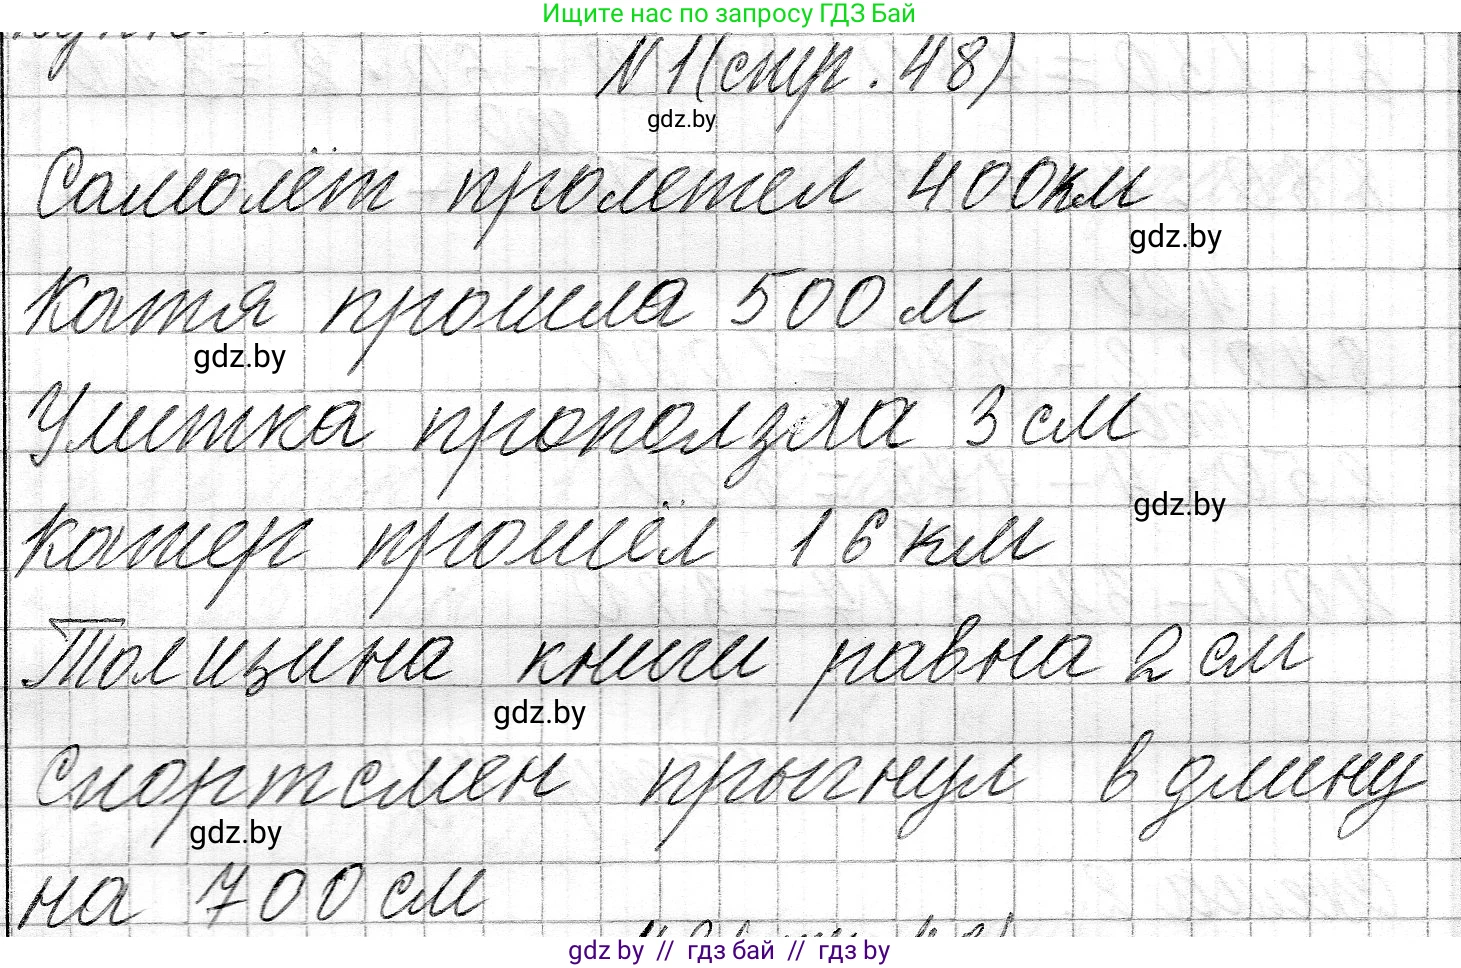 Ищите нас по запросу ГДЗ Бай
№1(стр. 48)
gdz.by
Самолёт пролетел 400км
gdz.by
Катя прошла 500 м
gdz.by
Улитка проползла 3 см
gdz.by
Катер прошёл 16 км
Толщина книги равна 2 см
gdz.by
Спортсмен прыгнул в длину
gdz.by
на 700 см
gdz by // гдз бай // гдз by